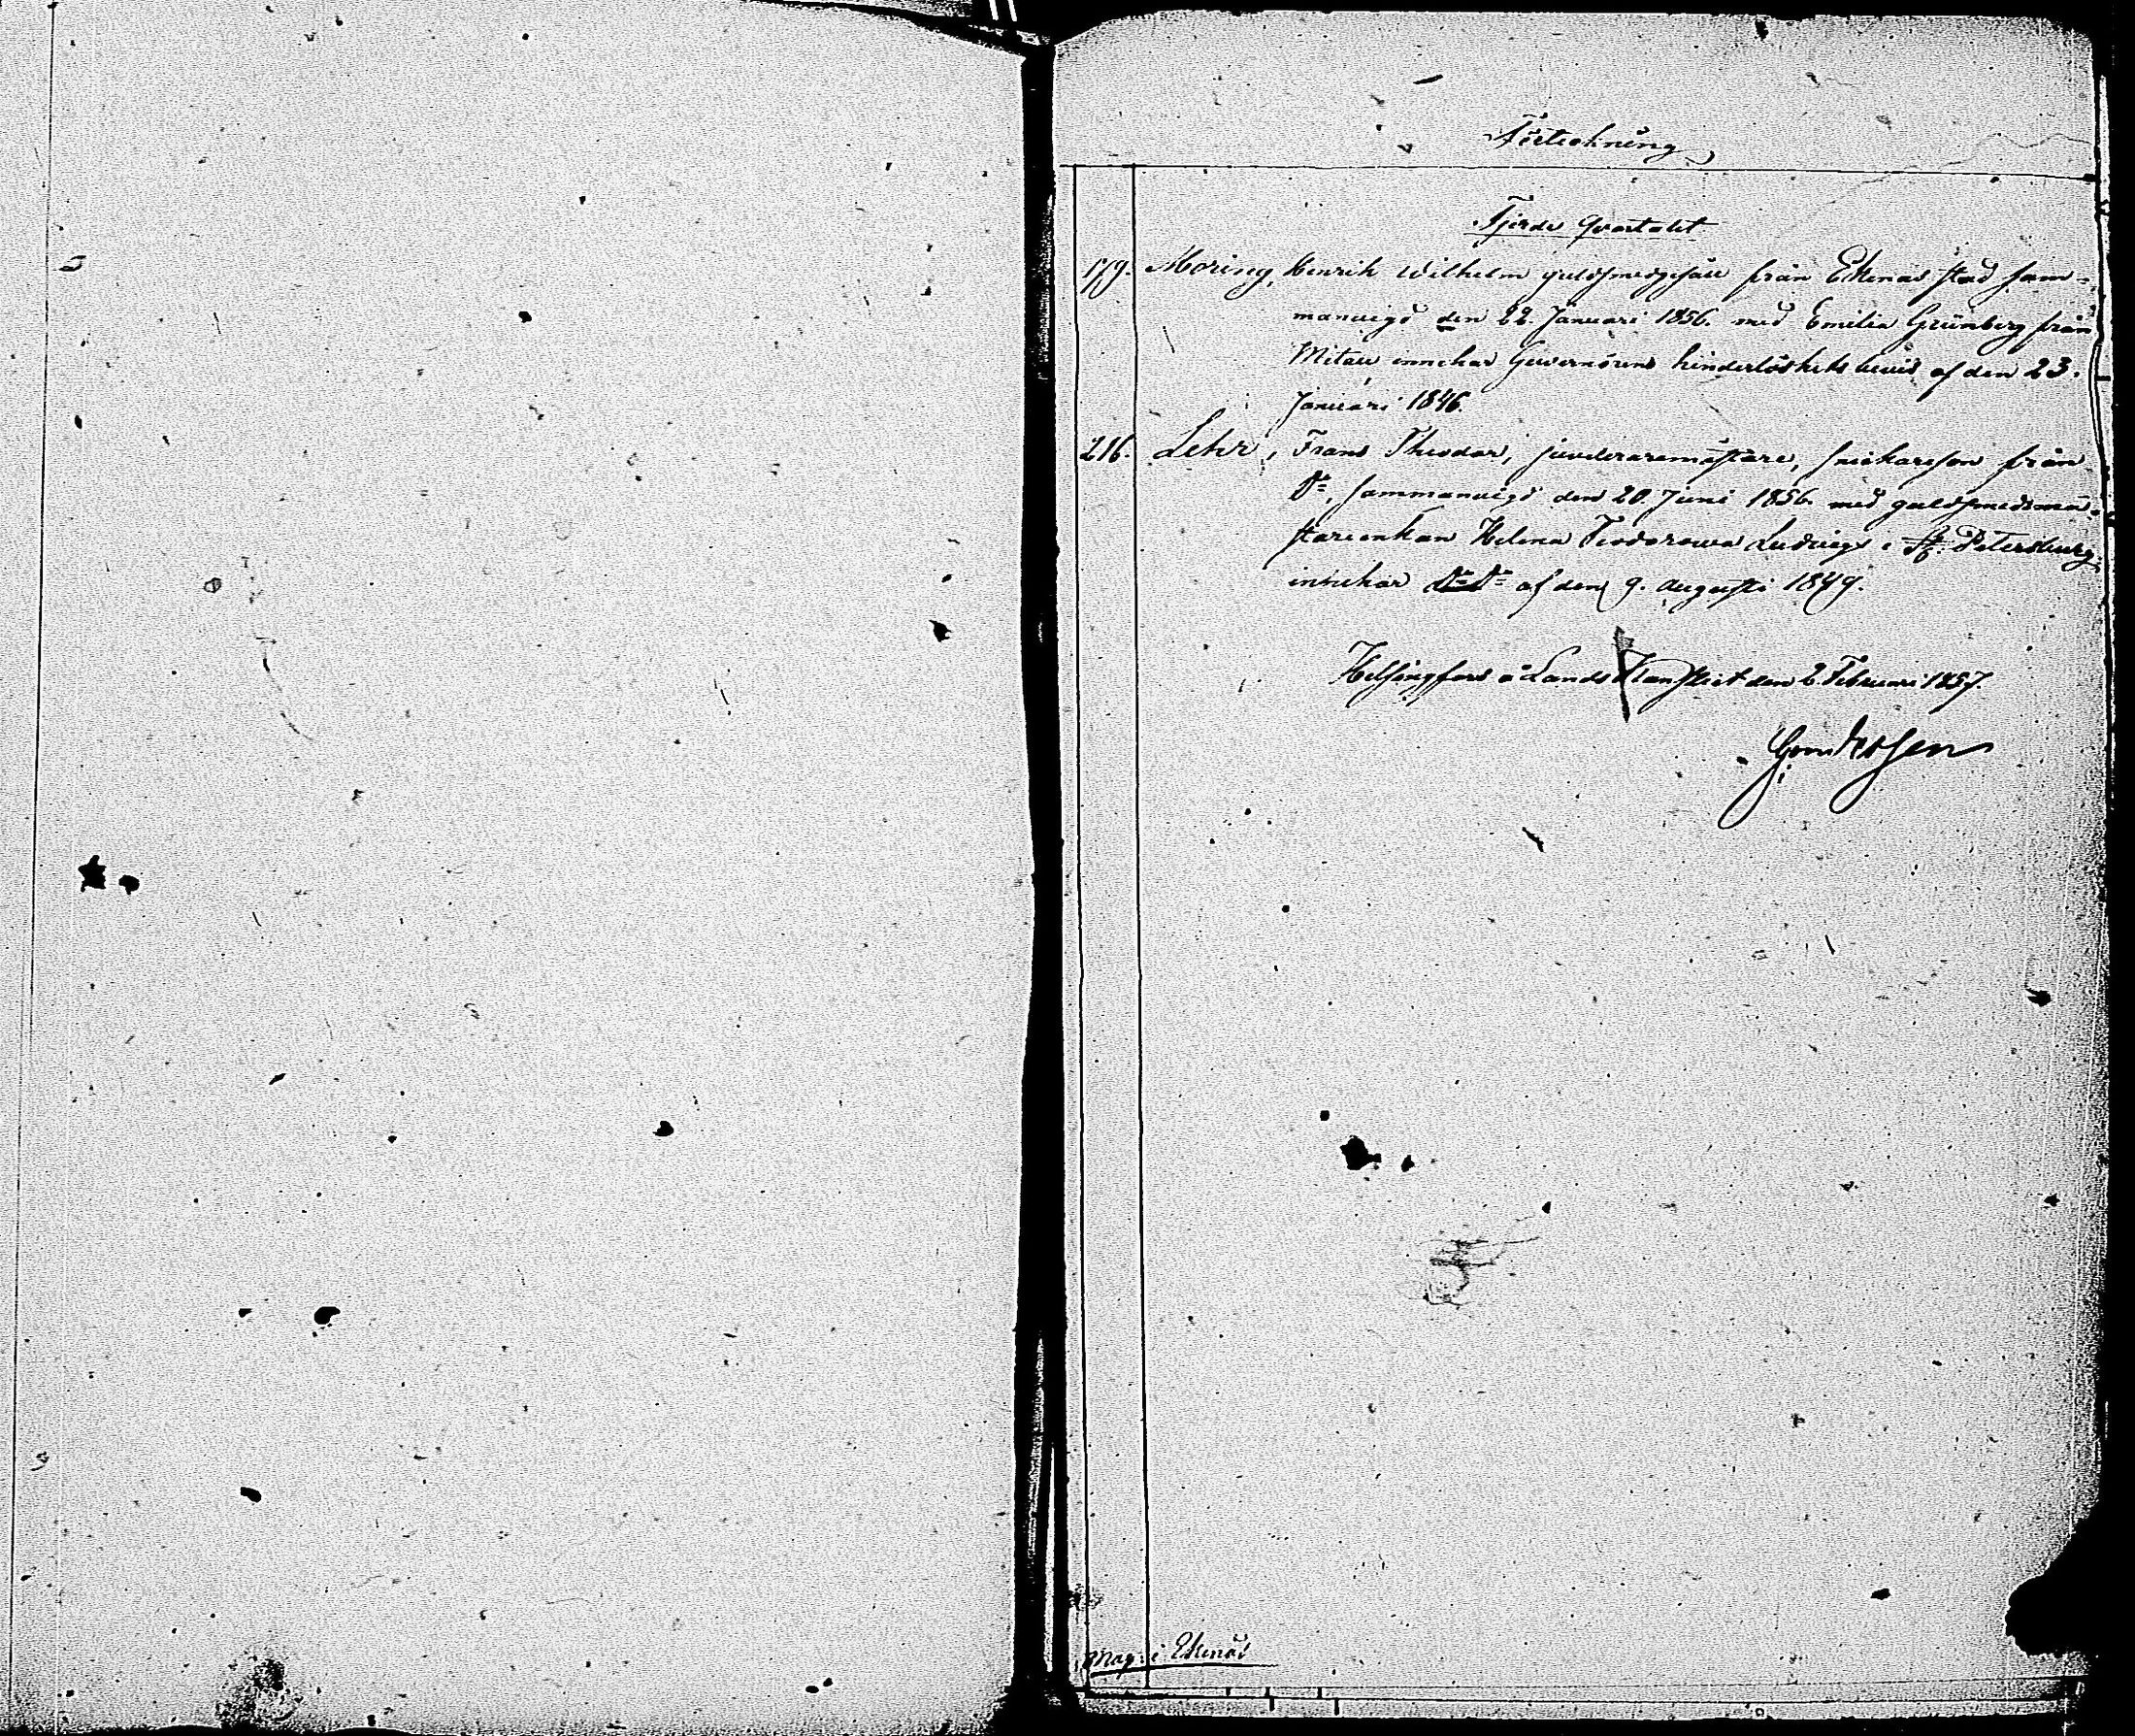 Förteckning
Fjerde Qvartalet
179. Moring, Henrik Wilhelm guldsmedgesäll från Ekenäs stad sam=
manvigd den 22. Januari 1856. med Emilia Grünberg från
Mitau innehar Guvernörens hinderlöshets bevis af den 23.
Januari 1846.
216. Lehr, Frans Theodor, juveleraremästare, snickareson från
Do, sammanvigd den 20. Juni 1856. med guldsmedsmä=
stareenkan Helena Feodorowa Ludwigs i St. Petersburg
innehar Do Do af den 9. Augusti 1849.
Helsingfors å Lands Kansliet den 2. Februari 1857.
Mag: i Ekenäs